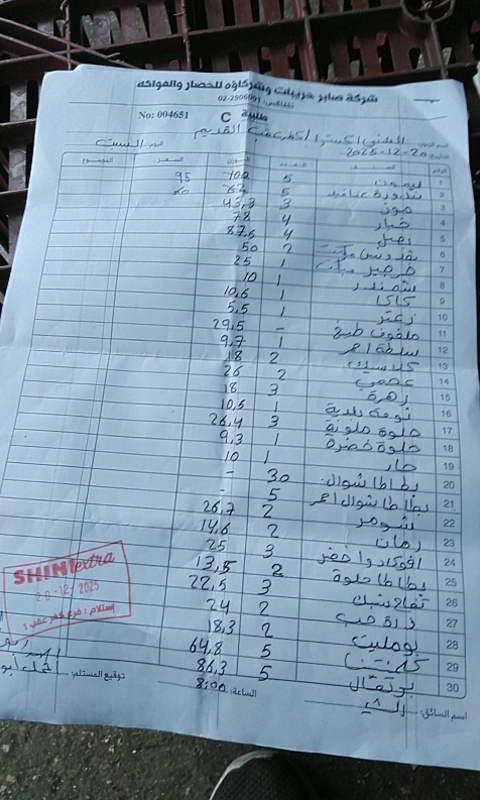 شركة صابر حريبات وشركاؤه للخضار والفواكه
تلفاكس: 02-2906091
No: 004651
طلبية C
الشني اكسترا / كفر عقب القديم
التاريخ: 20-12-2025 اليوم: السبت
الرقم الصنف العدد الوزن السعر المجموع
1 ليمون 5 100 95
2 بندورة عناقيد 5 62
3 موز 3 45,3
4 خيار 4 78
5 بصل 4 87,5
6 بقدونس 2 50
7 جرجير 1 25
8 شمندر 1 10
9 كاكا 1 10,6
10 زعتر 1 5,5
11 ملفوف طبخ - 29,5
12 سلطة احمر 1 9,7
13 كلاسيك 2 18
14 عجمي 2 26
15 زهرة 3 18
16 ثومة بلدية 1 10,5
17 حلوة ملونة 3 26,4
18 حلوة خضرة 1 9,3
19 حار 1 10
20 بطاطا شوال 30 -
21 بطاطا شوال احمر 5 -
22 شومر 2 26,7
23 رمان 2 14,6
24 افوكادو اخضر 3 25
25 بطاطا حلوة 2 13,5
26 تفاح سنك 3 22,5
27 ذرة حب 2 24
28 بوملیت 2 18,3
29 كلمنتينا 5 64,8
30 برتقال 5 86,3
اسم السائق: الساعة: 8:00 توقيع المستلم:
SHINIextra
20-12-2025
إستلام: فرع كفر عقب